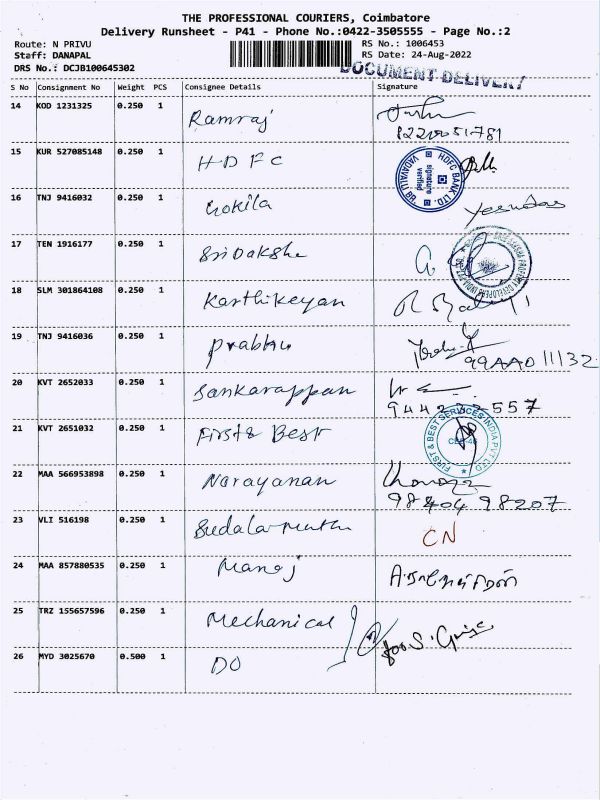 THE PROFESSIONAL COURIERS, Coimbatore
Delivery Runsheet - P41 - Phone No.:0422-3505555 - Page No.:2
Route: N PRIVU
RS No.: 1006453
Staff: DANAPAL
RS Date: 24-Aug-2022
DRS No.: DCJB100645302
DOCUMENT DELIVERY
S No Consignment No Weight PCS Consignee Details Signature
14 KOD 1231325 0.250 1 Ramraj
8220051781
15 KUR 527085148 0.250 1 HDFC
HDFC BANK LTD. VADAVALLI BR signature verified
16 TNJ 9416032 0.250 1 Gokila Yesudas
17 TEN 1916177 0.250 1 Sri Dakshe
18 SLM 301864108 0.250 1 Karthikeyan
19 TNJ 9416036 0.250 1 Prabhu
20 KVT 2652033 0.250 1 Sankarappan
21 KVT 2651032 0.250 1 First & Best
FIRST & BEST SERVICES INDIA PVT LTD
22 MAA 566953898 0.250 1 Narayanan
98404 98207
23 VLI 516198 0.250 1 Sudalamuthu CN
24 MAA 857880535 0.250 1 Manoj
25 TRZ 155657596 0.250 1 Mechanical
26 MYD 3025670 0.500 1 DO